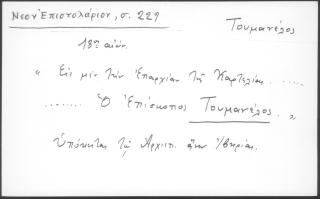 Νεον Ἐπιστολάριον, σ. 229
Τουμανέλος
18ος αἰών.
" Εἰς μὲν τὴν Ἐπαρχίαν τῆς Καρτελίας ......
......... Ὁ Ἐπίσκοπος Τουμανέλος. "
Ὑπόκειται τῷ Ἀρχιεπ. Ἰβηρίας.